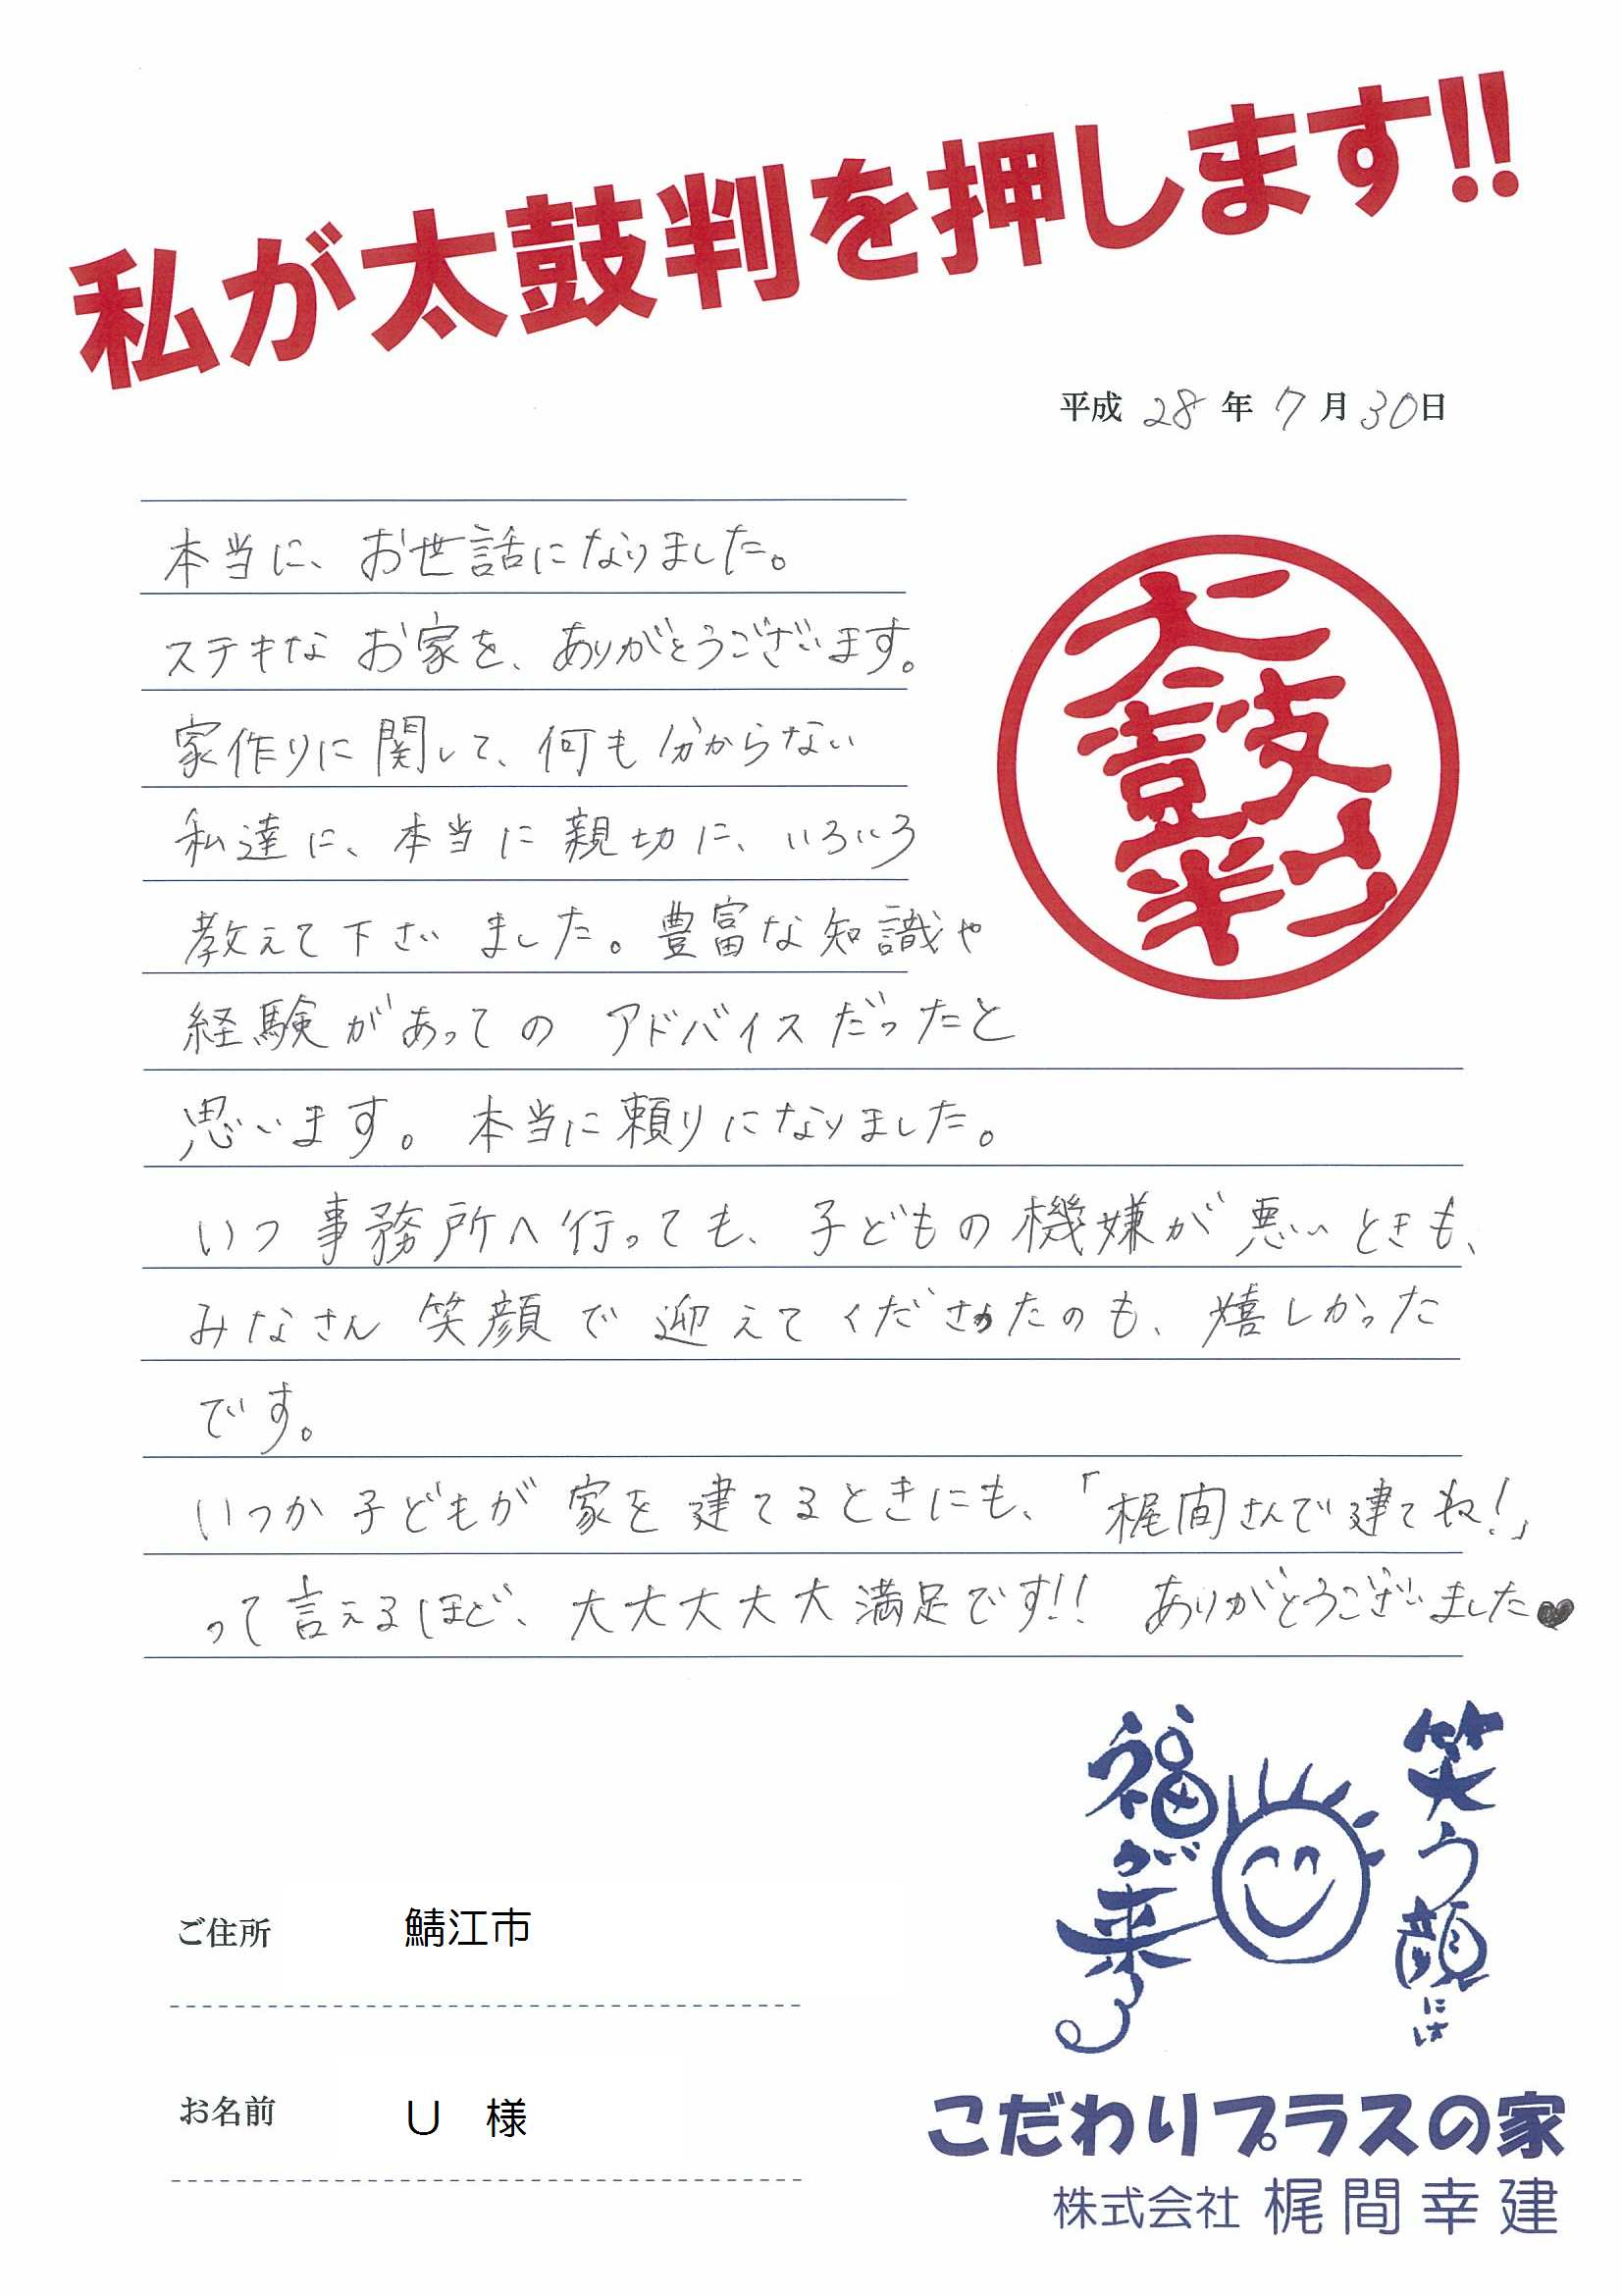 私が太鼓判を押します!!
平成 28 年 7 月 30 日
本当に、お世話になりました。
ステキな お家を、ありがとうございます。
家作りに関して、何も分からない
私達に、本当に親切に、いろいろ
教えて下さい ました。豊富な知識や
経験があっての アドバイスだったと
思います。 本当に頼りになりました。
いつ事務所へ行っても、子どもの機嫌が悪いときも、
みなさん笑顔で迎えてくださったのも、嬉しかった
です。
いつか子どもが家を建てるときにも、「梶間さんで建てね!」
って言えるほど、大大大大大満足です!! ありがとうございました♥
太鼓判
笑う顔には
福が来る
ご住所 鯖江市
お名前 U 様
こだわりプラスの家
株式会社 梶間幸建